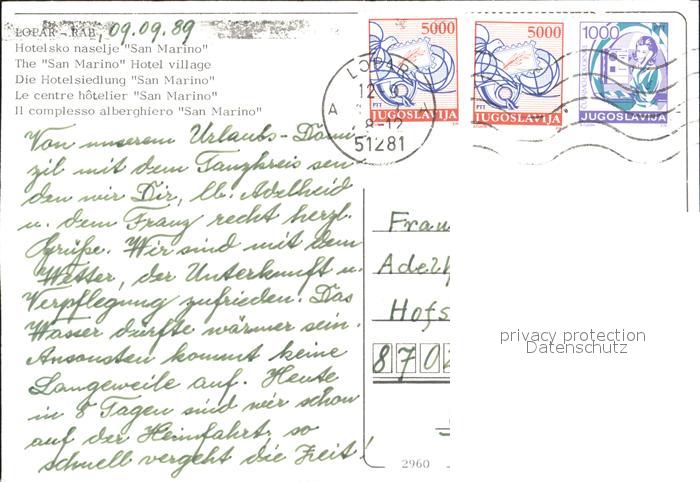 LOPAR - RAB, 09.09.89
Hotelsko naselje "San Marino"
The "San Marino" Hotel village
Die Hotelsiedlung "San Marino"
Le centre hôtelier "San Marino"
Il complesso alberghiero "San Marino"
Von unserem Urlaubs-Domi
zil mit dem Tanzkreis sen
den wir Dir, lb. Adelheid
u. dem Franz recht herzl.
Grüße. Wir sind mit dem
Wetter, der Unterkunft u.
Verpflegung zufrieden. Das
Wasser dürfte wärmer sein.
Ansonsten kommt keine
Langeweile auf. Heute
in 8 Tagen sind wir schon
auf der Heimfahrt, so
schnell vergeht die Zeit!
5000
PTT
JUGOSLAVIJA
5000
PTT
JUGOSLAVIJA
1000
JUGOSLAVIJA
LOPAR
12-9
A
8-12
51281
Frau
Adelh
Hofs
870
2960
privacy protection
Datenschutz